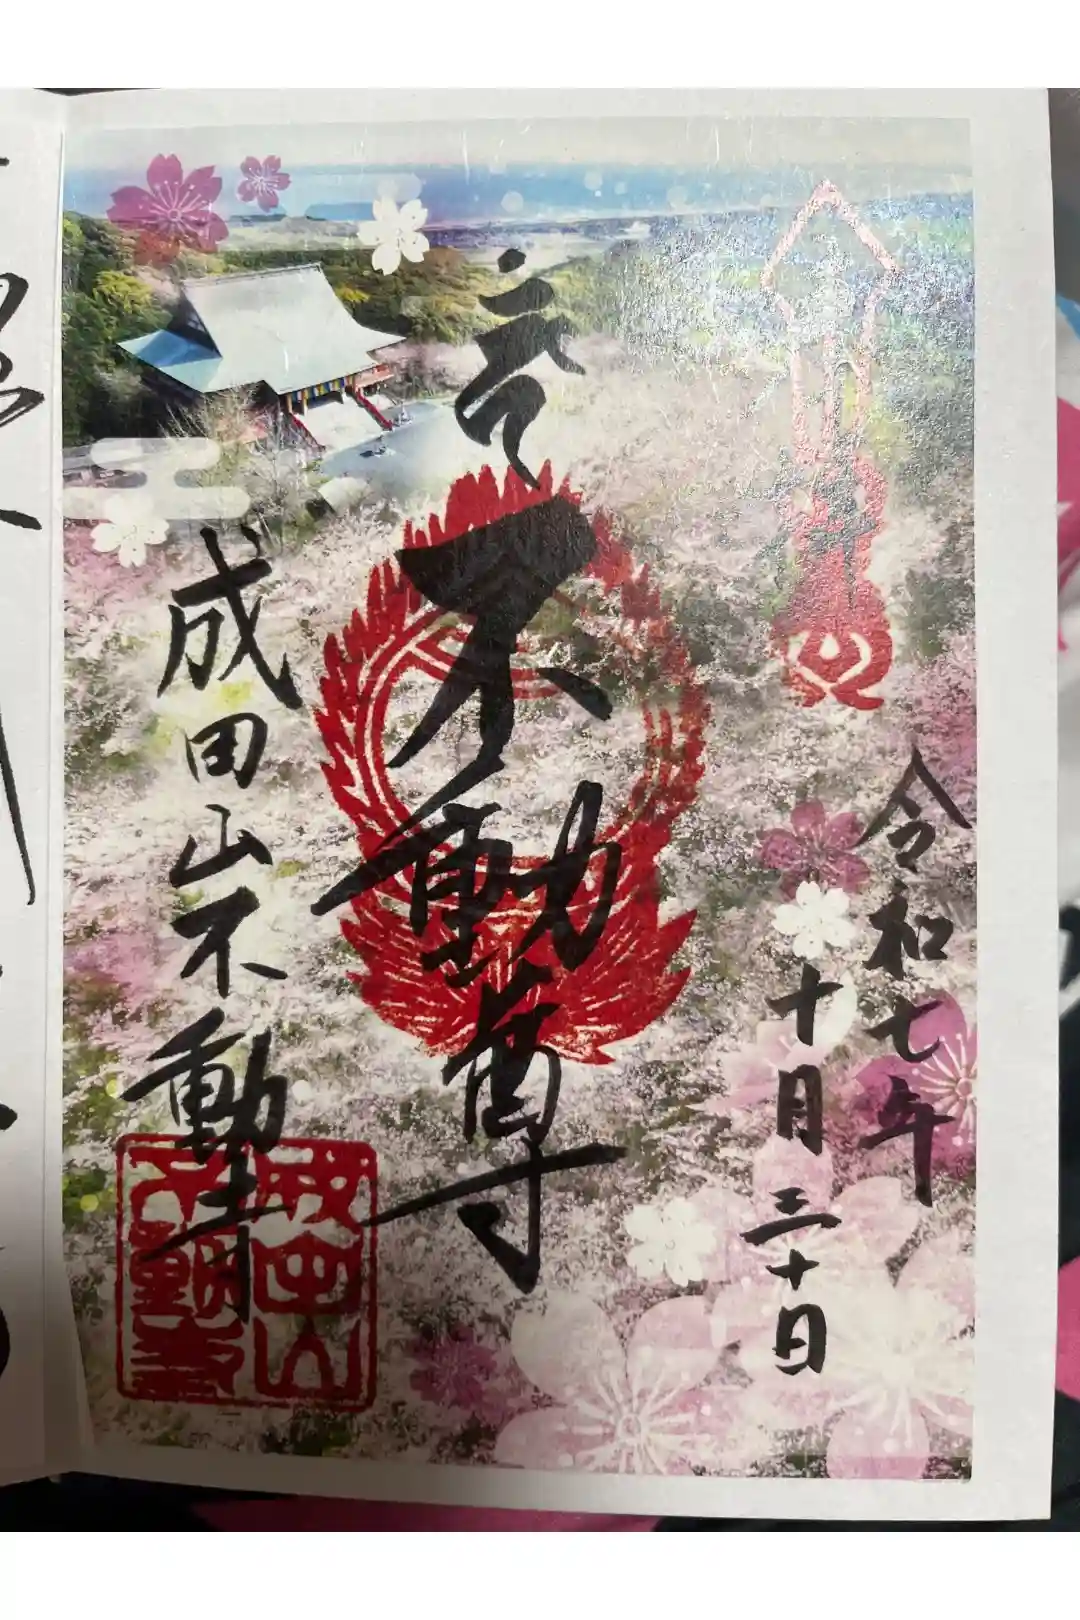 奉拝
令和七年
十月三十日
不動尊
成田山不動寺
成田山
不動寺